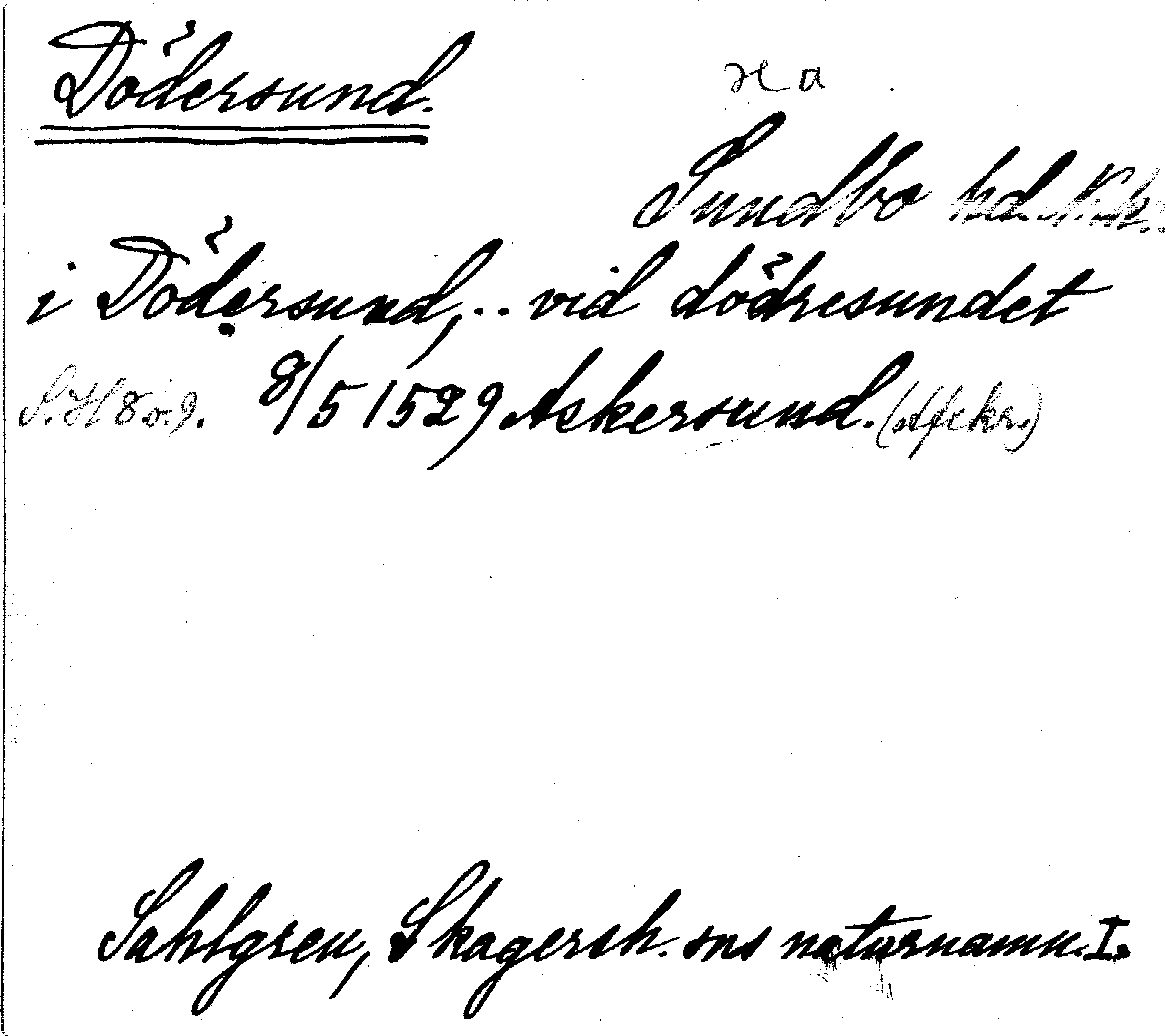 Dödersund.
Na
Sundbo hd. Nk.
i Dödersund,.. vid dödresundet
S.H 8 o. 9. 8/5 1529 Askersund. (Afskr.)
Sahlgren, Skagersh. sns naturnamn. I.